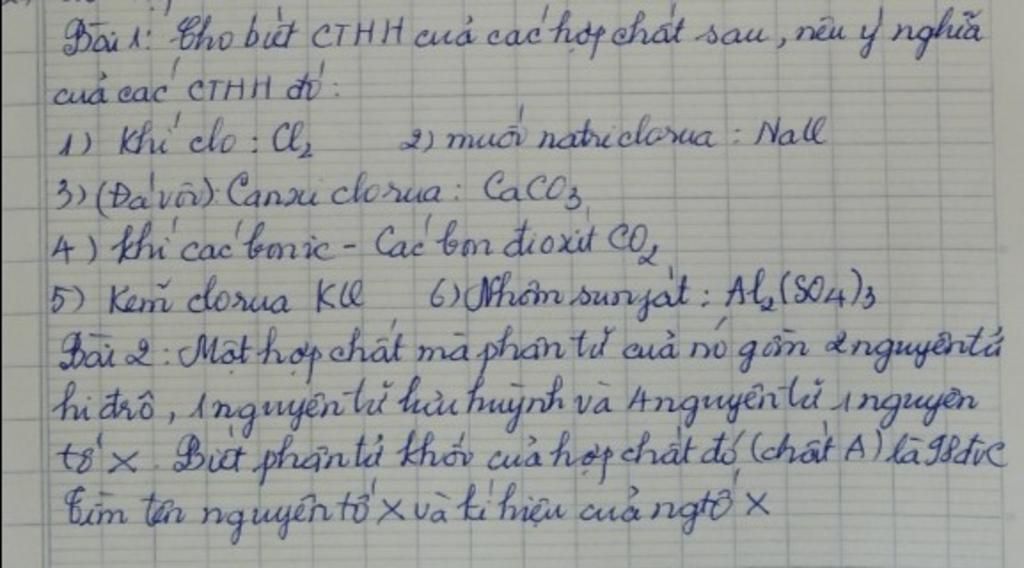 Bài 1: Cho biết CTHH của các hợp chất sau, nêu ý nghĩa
của các CTHH đó:
1) Khí clo : Cl₂ 2) muối natri clorua : NaCl
3) (Đá vôi): Canxi clorua : CaCO₃
4) khí các bonic - Các bon đioxit CO₂
5) Kẽm clorua KCl 6) Nhôm sunfat : Al₂(SO₄)₃
Bài 2 : Một hợp chất mà phân tử của nó gồm 2 nguyên tử
hiđrô, 1 nguyên tử lưu huỳnh và 4 nguyên tử 1 nguyên
tố X. Biết phân tử khối của hợp chất đó (chất A) là 98đvC
Tìm tên nguyên tố X và kí hiệu của ngtố X